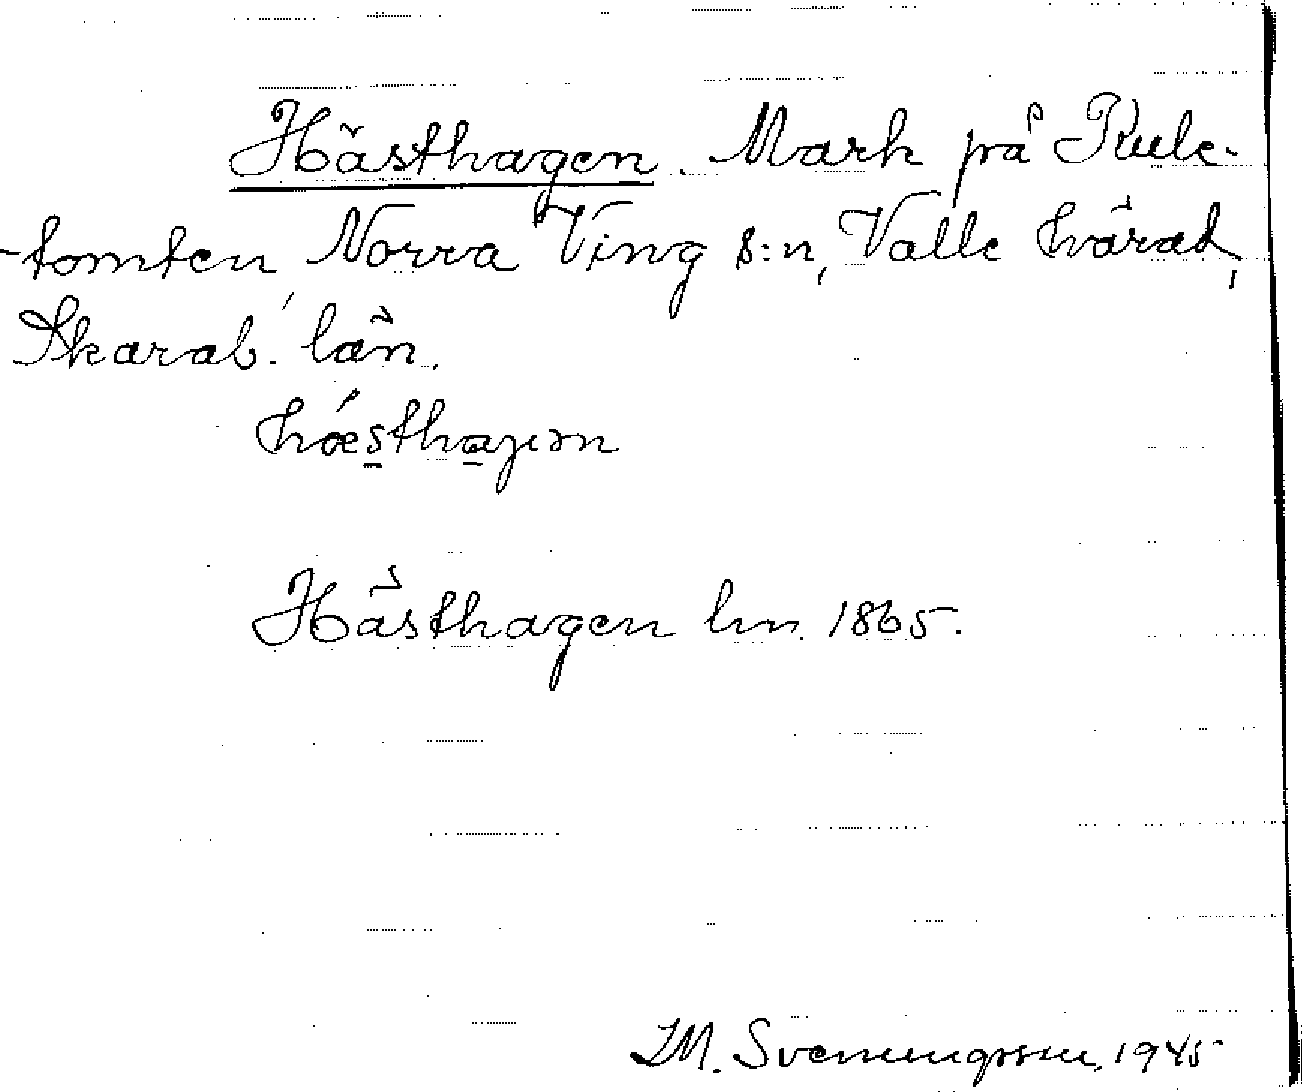 Hästhagen. Mark på Rule-
-tomten, Norra Ving s:n, Valle härad,
Skarab. län.
hǽsthaɡɩən
Hästhagen hm. 1865.
IM. Svenungsson, 1945